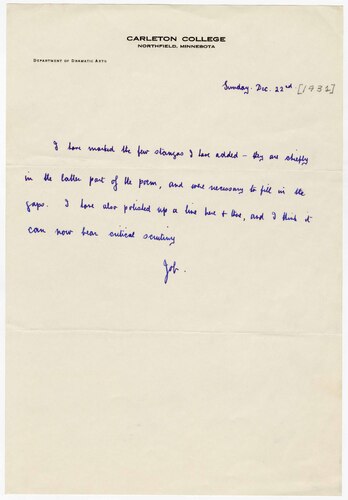 CARLETON COLLEGE
NORTHFIELD, MINNESOTA
DEPARTMENT OF DRAMATIC ARTS
Sunday. Dec. 22nd. [1931]
I have marked the few stanzas I have added – they are chiefly
in the latter part of the poem, and were necessary to fill in the
gaps. I have also polished up a line here & there, and I think it
can now bear critical scrutiny
Job.